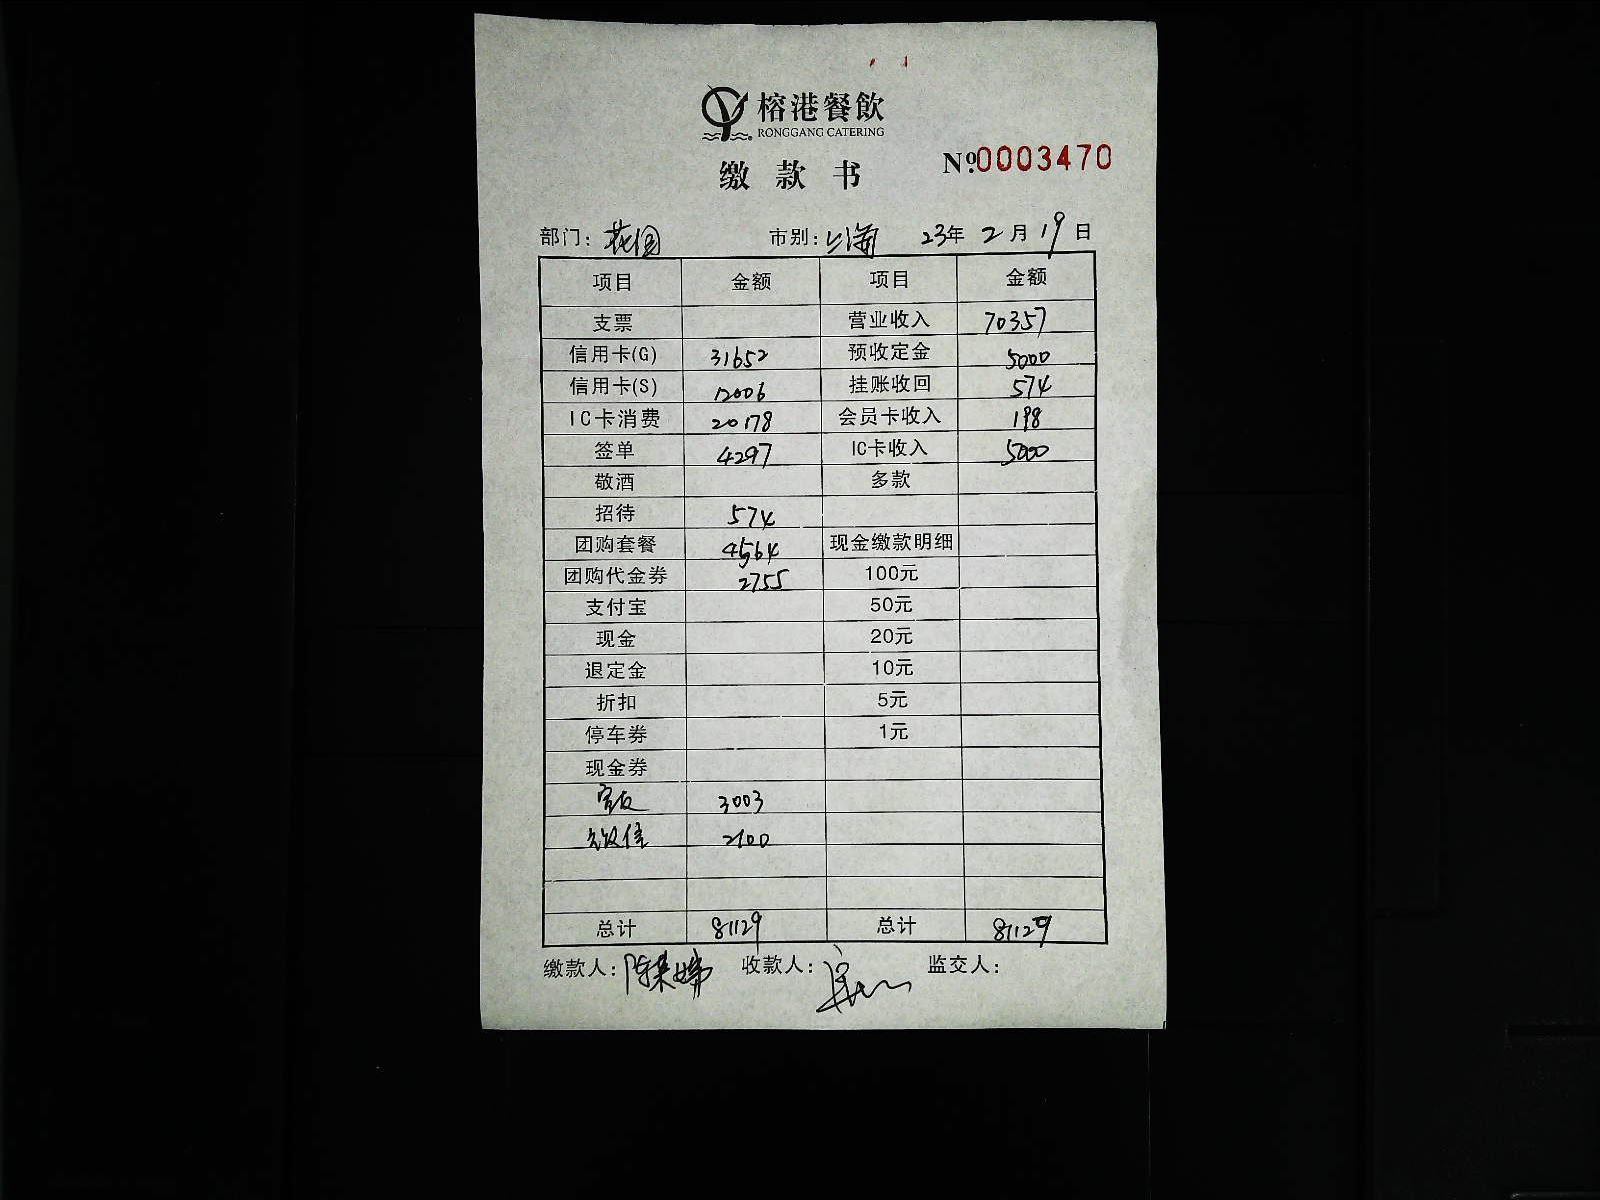 榕港餐飲
RONGGANG CATERING
缴款书
№0003470
部门: 花园 市别: 上海 23年 2月 19日
项目 金额 项目 金额
支票 营业收入 70357
信用卡(G) 31652 预收定金 5000
信用卡(S) 12006 挂账收回 574
IC卡消费 20178 会员卡收入 198
签单 4297 IC卡收入 5000
敬酒 多款
招待 574
团购套餐 4564 现金缴款明细
团购代金券 2755 100元
支付宝 50元
现金 20元
退定金 10元
折扣 5元
停车券 1元
现金券
3003
微信 2100
总计 81129 总计 81129
缴款人: 陈 收款人: 监交人: